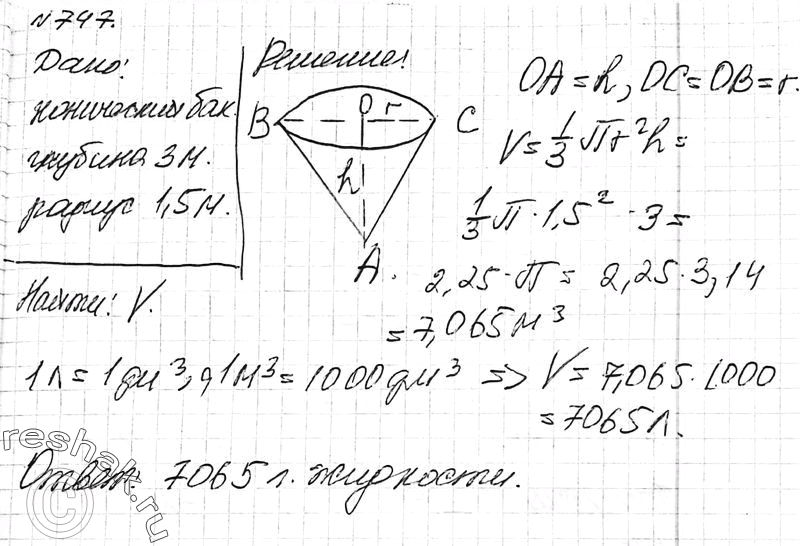 №747.
Дано:
конический бак.
глубина 3 м.
радиус 1,5 м.
Найти: V.
Решение:
B O r C
h
A.
OA = h, OC = OB = r.
V = 1/3 πr²h =
1/3 π · 1,5² · 3 =
2,25 · π = 2,25 · 3,14
= 7,065 м³
1 л = 1 дм³, а 1 м³ = 1000 дм³ => V = 7,065 · 1000
= 7065 л.
Ответ: 7065 л. жидкости.
reshak.ru
©